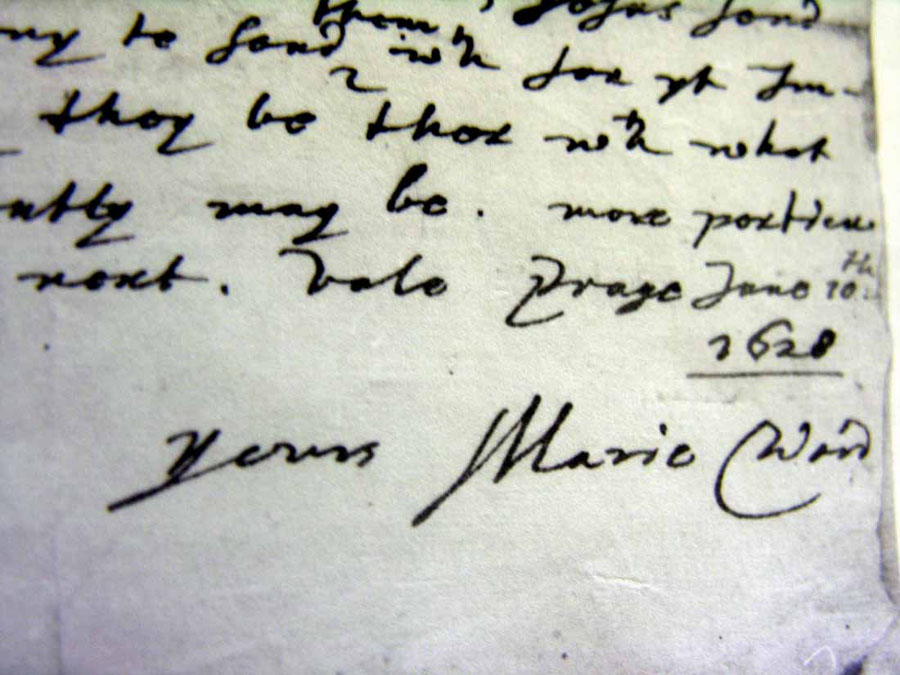 them, Jesus send
ny to send wth for yt Im-
they be ther wth what
ntly may be. more perticu
next. Vale Prage June 10th
1628
Yours Marie Ward